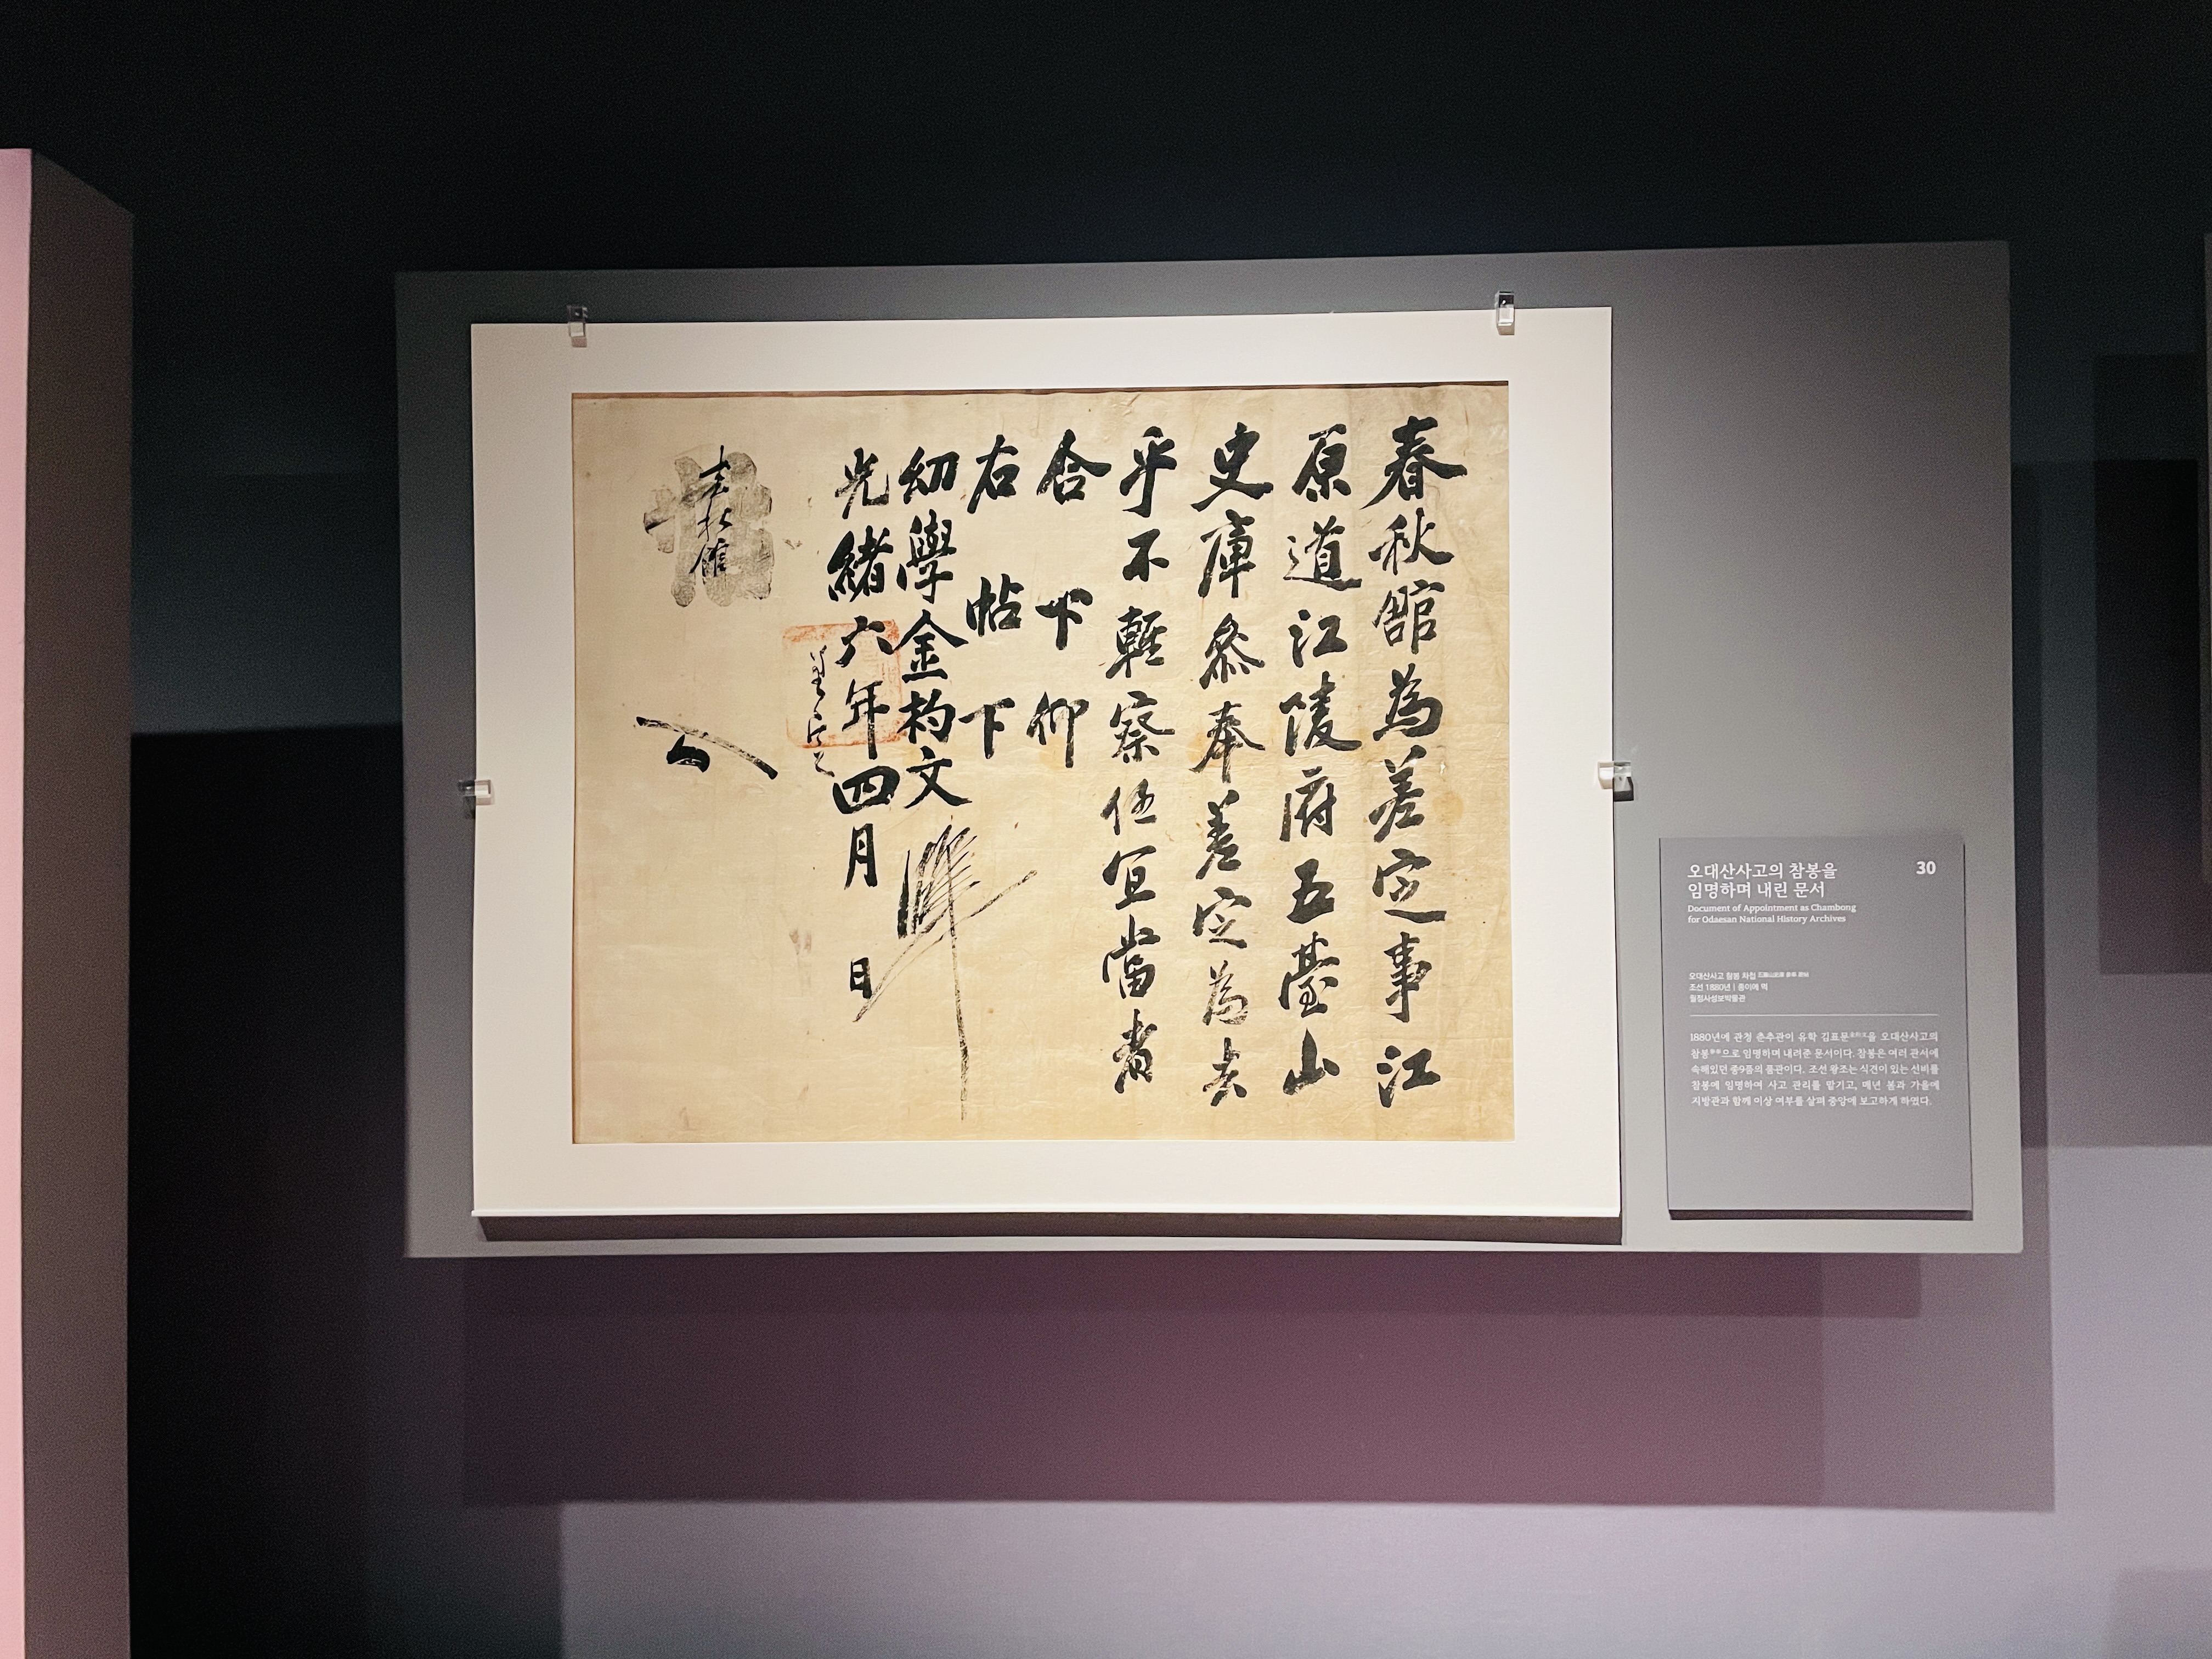 春秋館為差定事江
原道江陵府五臺山
史庫叅奉差定為去
乎不輕察任宜當者
合下仰
右帖下
幼學金杓文
光緖六年四月日
差定
春秋館
오대산사고의 참봉을
임명하며 내린 문서
30
Document of Appointment as Chambong
for Odaesan National History Archives
오대산사고 참봉 차첩
조선 1880년 | 종이에 먹
월정사성보박물관
1880년에 관청 춘추관이 유학 김표문을 오대산사고의
참봉으로 임명하며 내려준 문서이다. 참봉은 여러 관서에
속해있던 종9품의 품관이다. 조선 왕조는 식견이 있는 선비를
참봉에 임명하여 사고 관리를 맡기고, 매년 봄과 가을에
지방관과 함께 이상 여부를 살펴 중앙에 보고하게 하였다.